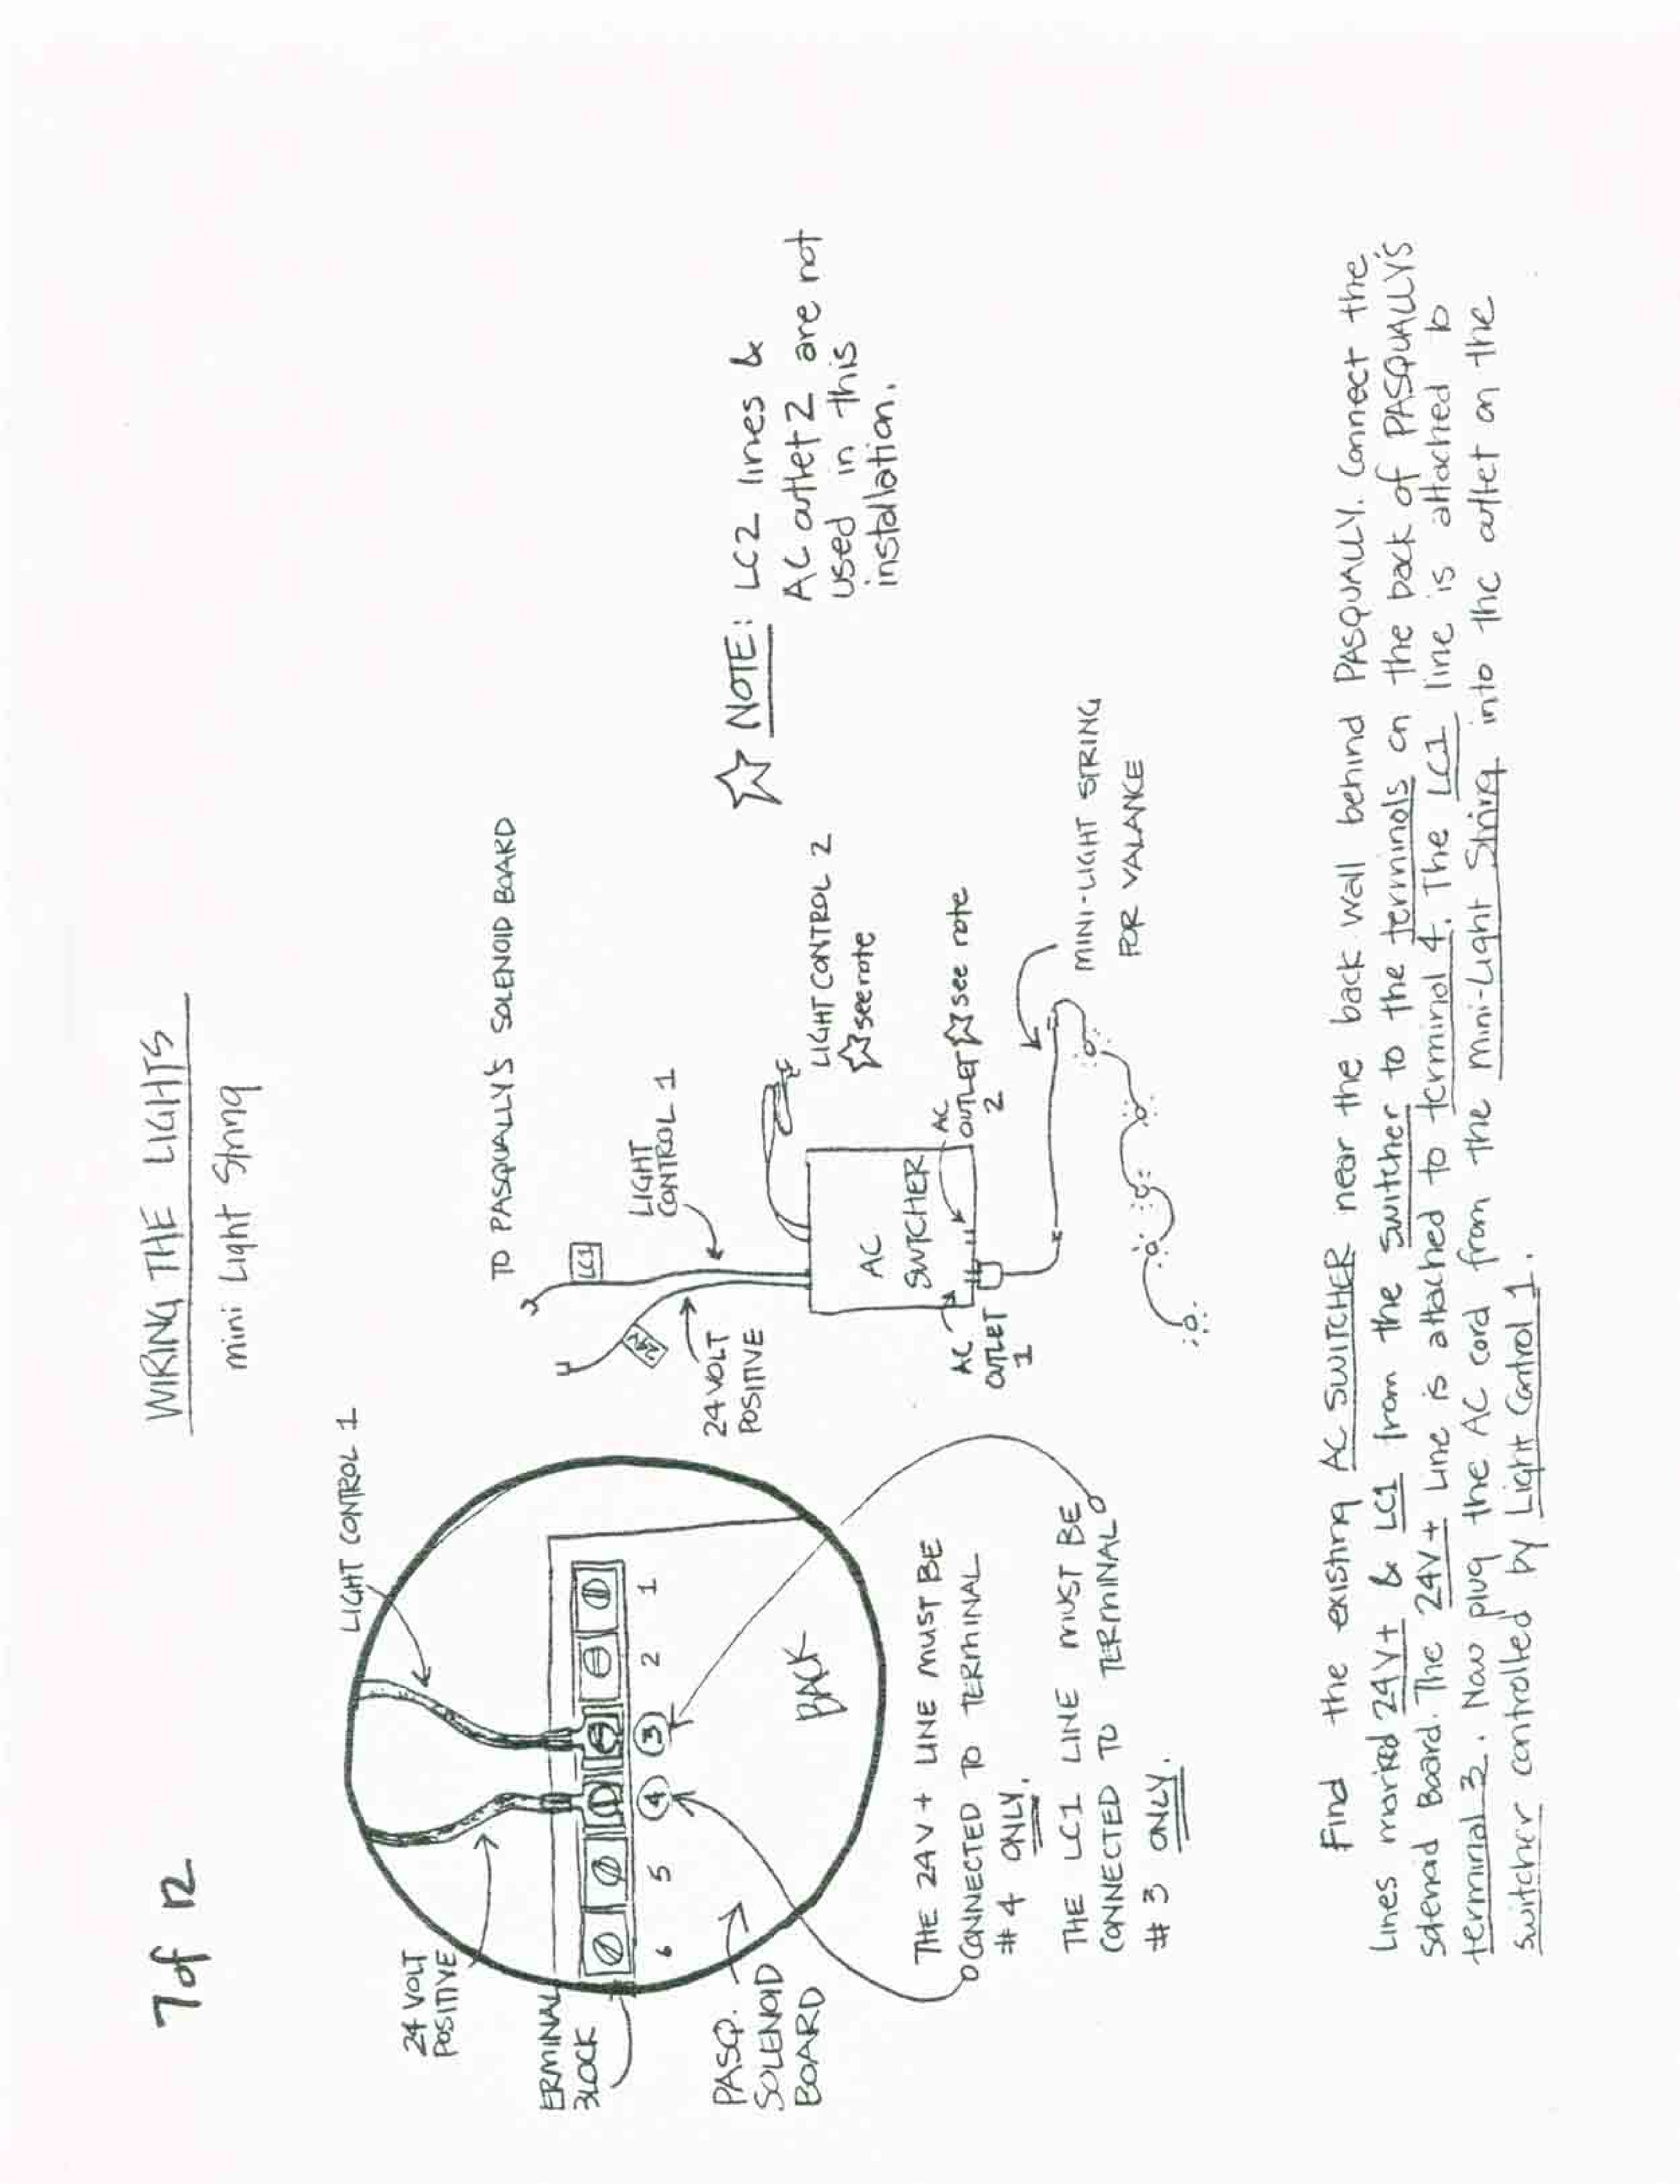 7 of 12
WIRING THE LIGHTS
mini Light String
LIGHT CONTROL 1
24 VOLT
POSITIVE
ERMINAL
BLOCK
6 5 4 3 2 1
PASQ.
SOLENOID
BOARD
BACK
THE 24V+ LINE MUST BE
CONNECTED TO TERMINAL
#4 ONLY.
THE LC1 LINE MUST BE
CONNECTED TO TERMINAL
#3 ONLY.
TO PASQUALLY'S SOLENOID BOARD
LC1
24V
LIGHT
CONTROL 1
24 VOLT
POSITIVE
AC
SWTCHER
LIGHT CONTROL 2
☆ see note
AC
OUTLET
1
AC
OUTLET ☆ see note
2
MINI-LIGHT STRING
FOR VALANCE
☆ NOTE: LC2 lines &
AC outlet 2 are not
used in this
installation.
Find the existing AC SWITCHER near the back wall behind PASQUALLY. Connect the
Lines marked 24V+ & LC1 from the switcher to the terminals on the back of PASQUALLY'S
Solenoid Board. The 24V+ Line is attached to terminal 4. The LC1 line is attached to
terminal 3. Now plug the AC cord from the mini-Light String into the outlet on the
switcher controlled by Light Control 1.